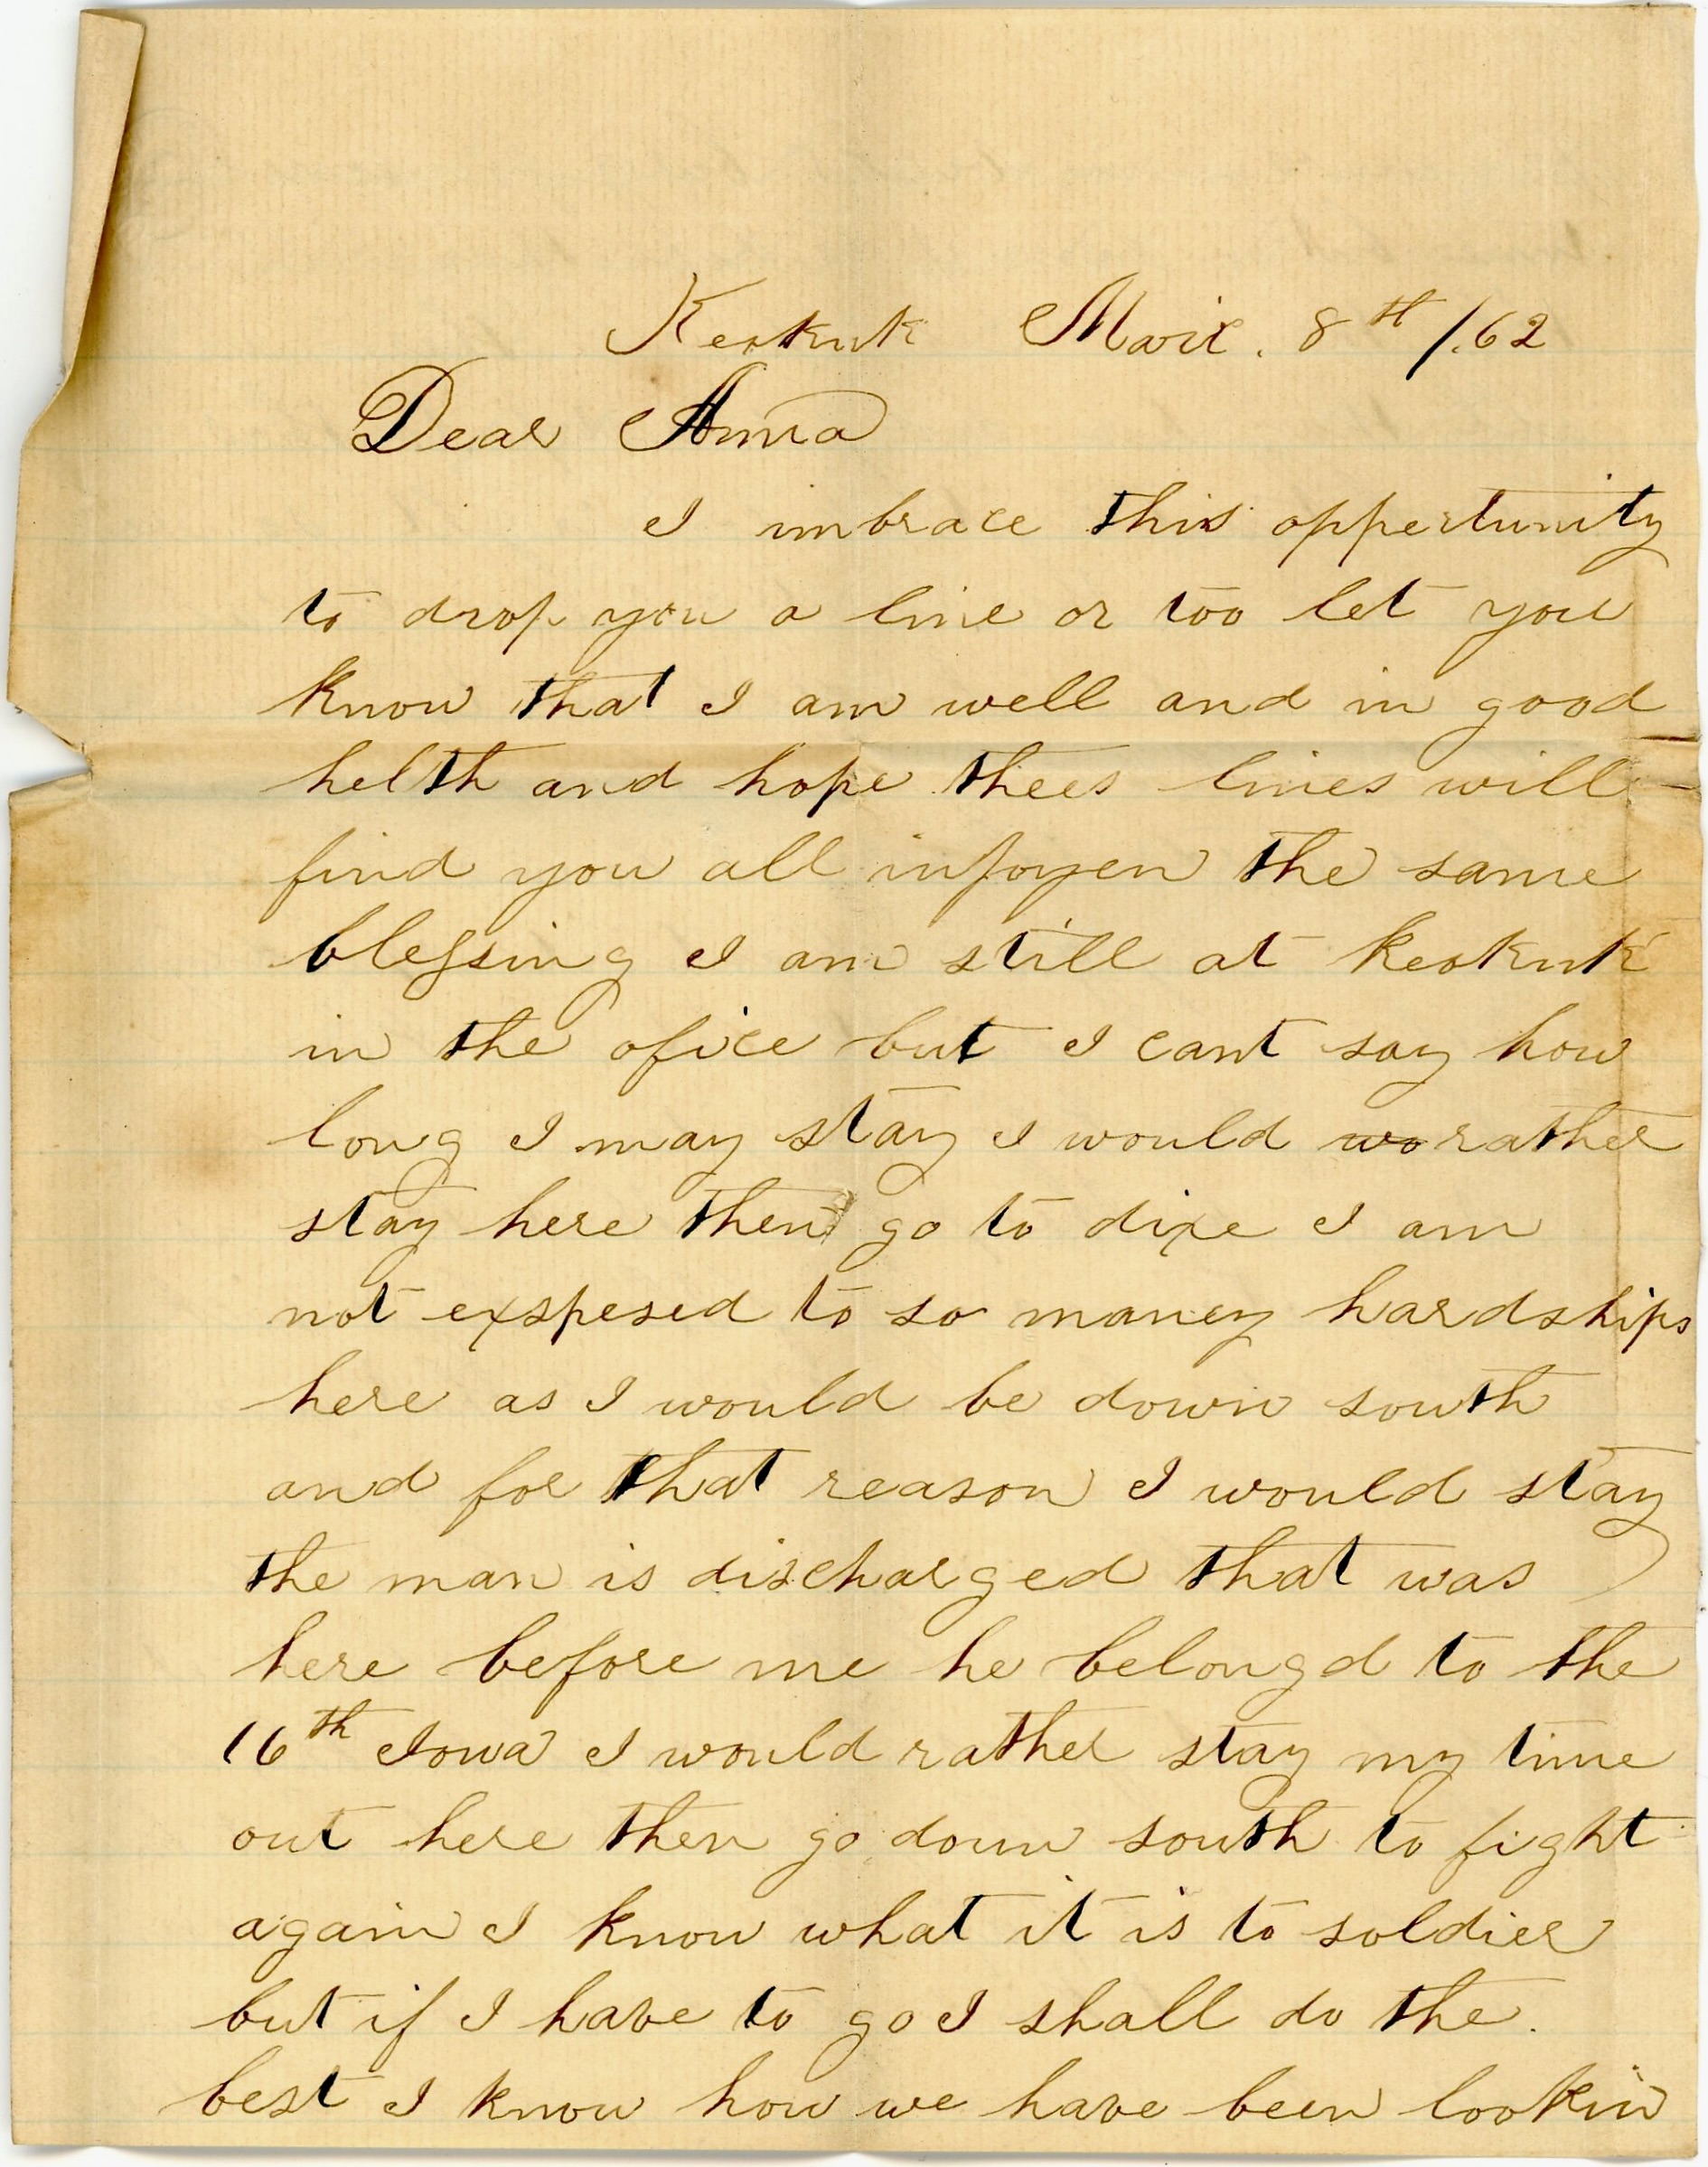 Keokuk Marc. 8th /.62
Dear Anna
I imbrace this oppertunity
to drop you a line or too let you
know that I am well and in good
helth and hope thees lines will
find you all injoyen the same
blessing I am still at Keokuk
in the ofice but I cant say how
long I may stay I would wo rather
stay here then go to dixe I am
not exspesed to so maney hardships
here as I would be down south
and for that reason I would stay
the man is discharged that was
here before me he belongd to the
16th Iowa I would rather stay my time
out here then go doun south to fight
again I know what it is to soldier
but if I have to go I shall do the.
best I know how we have been lookin